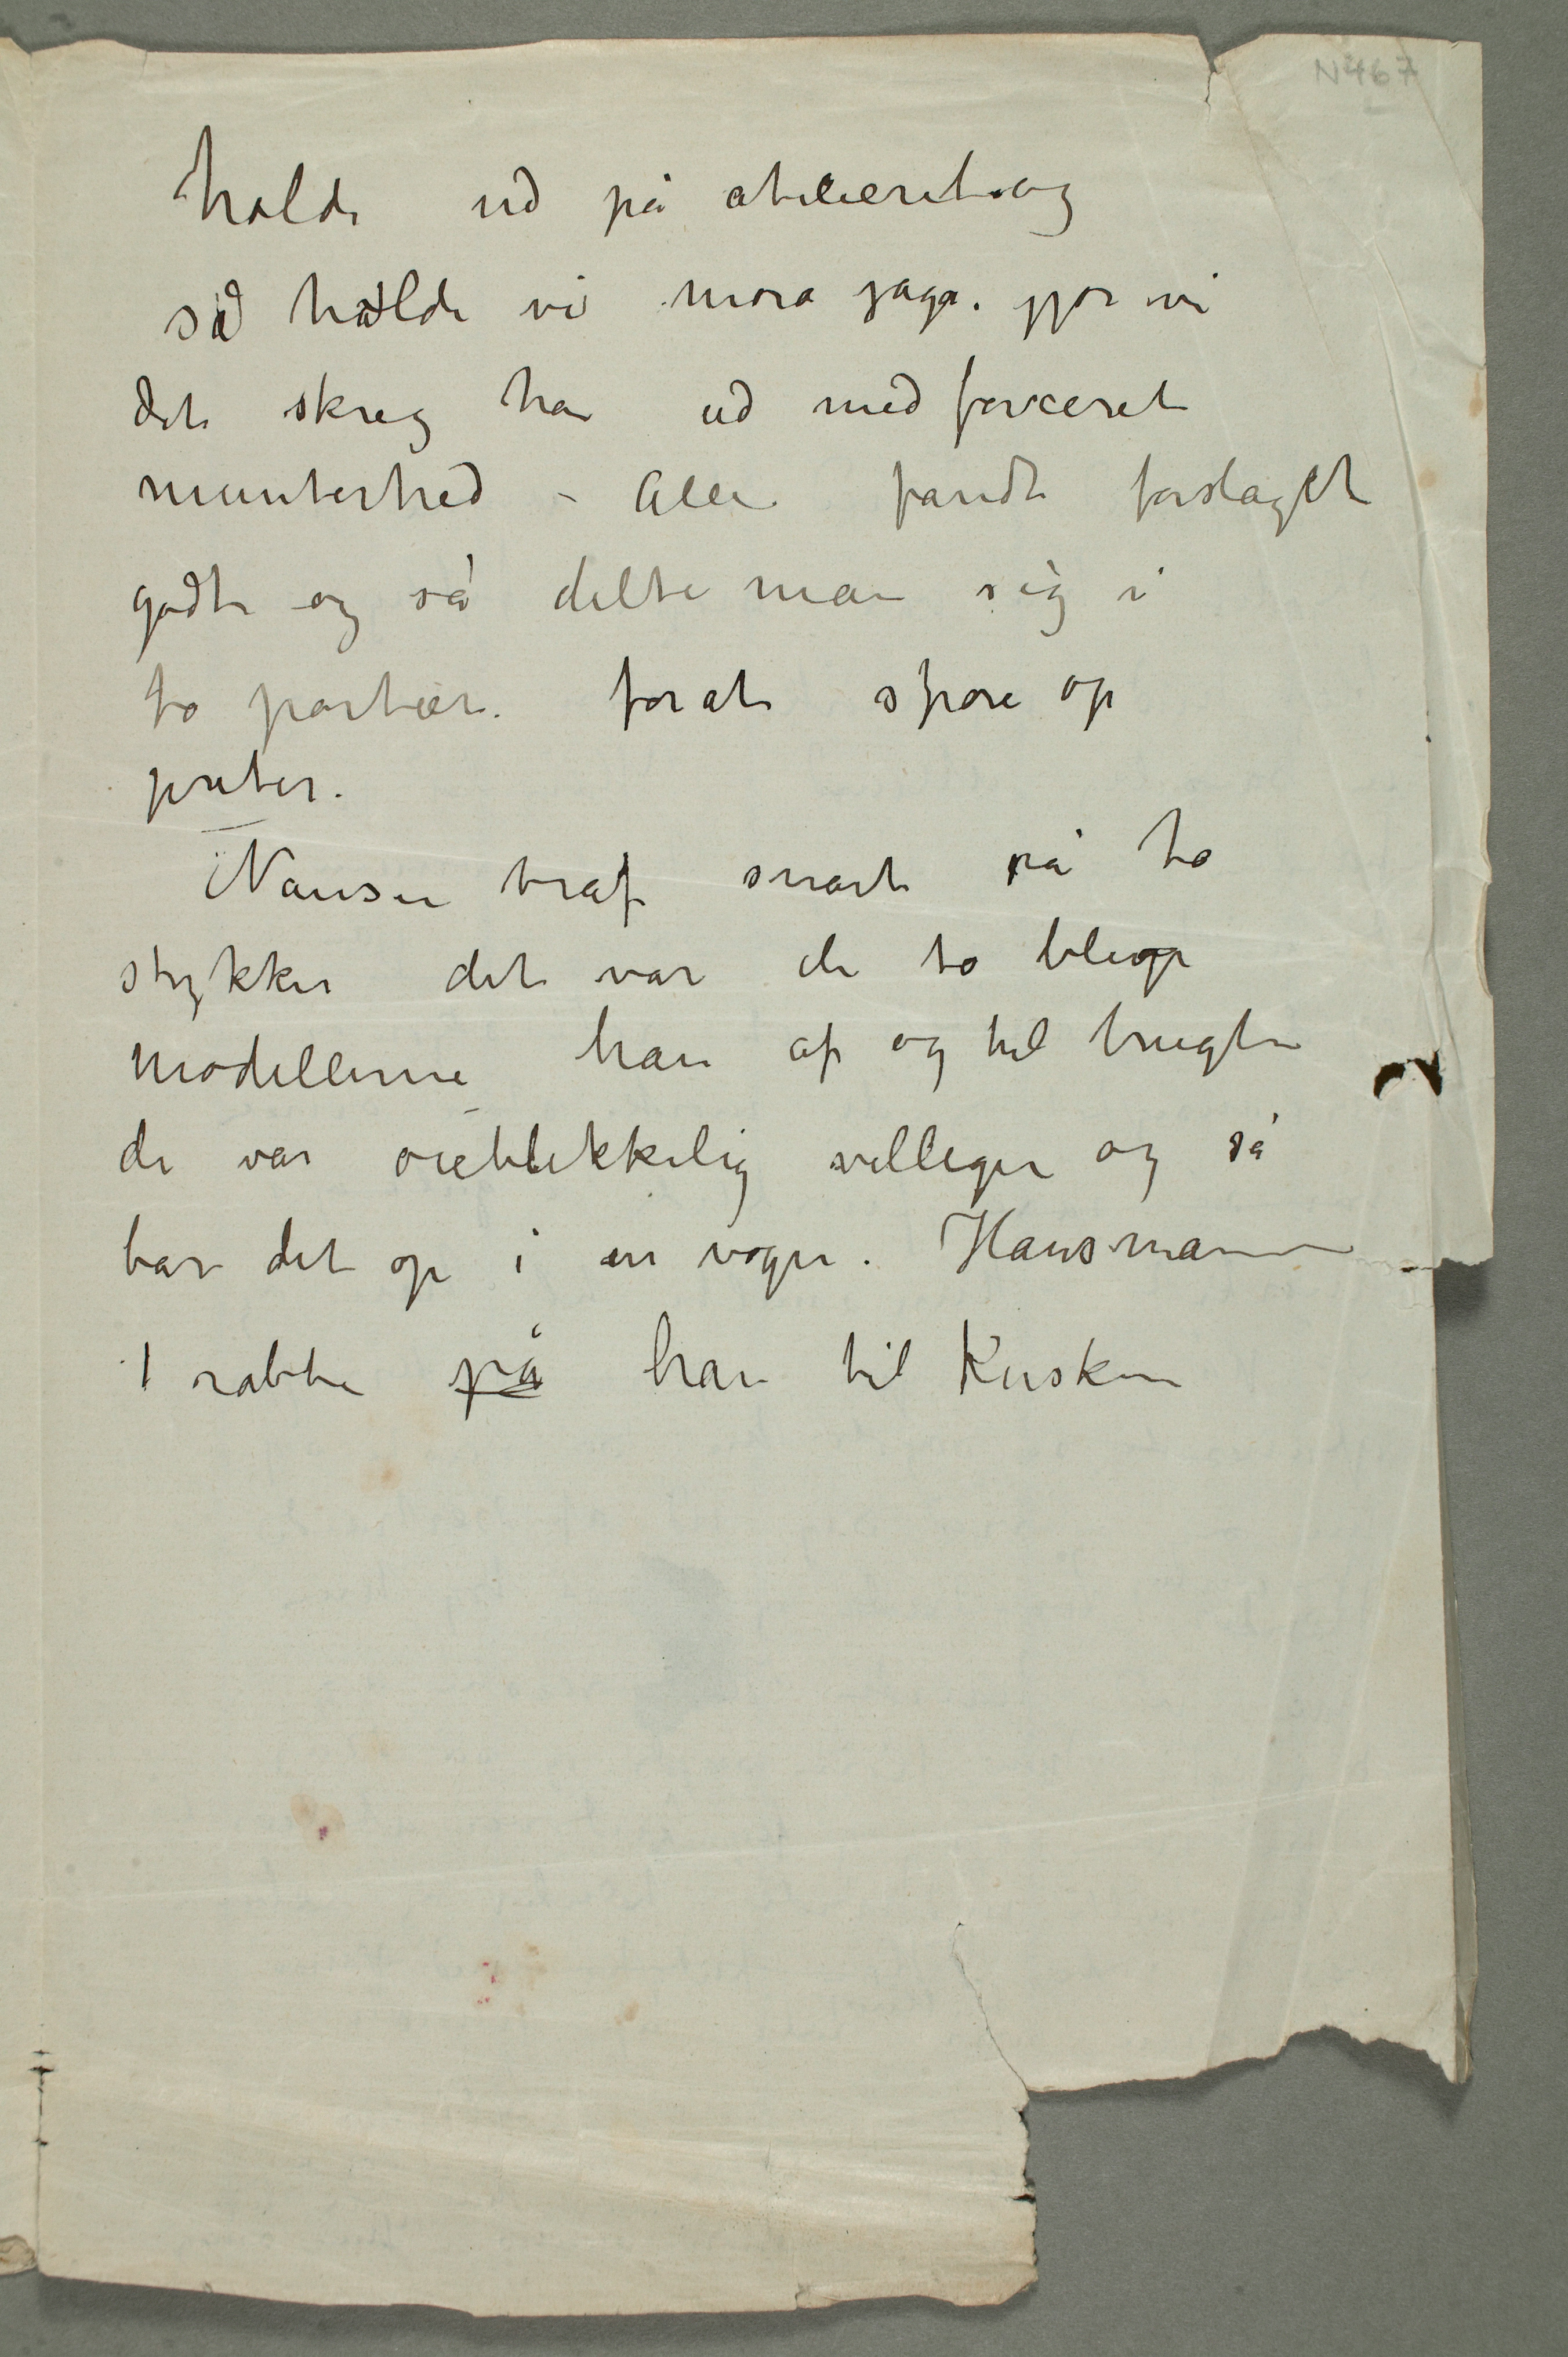 N 467
holdt ud på atelieret og
så holdt vi mora jaga. gjør vi
det skreg han ud med forceret
munterhed – Alle fandt forslaget
godt og så delte man sig i
to partier. forat spore op
jenter.
Nansen traf snart på to
stykker det var de to blege
modellerne han af og til brugte
de var øieblikkelig villige og så
bar det op i en vogn. Hausmann
1 rabte på han til Kusken